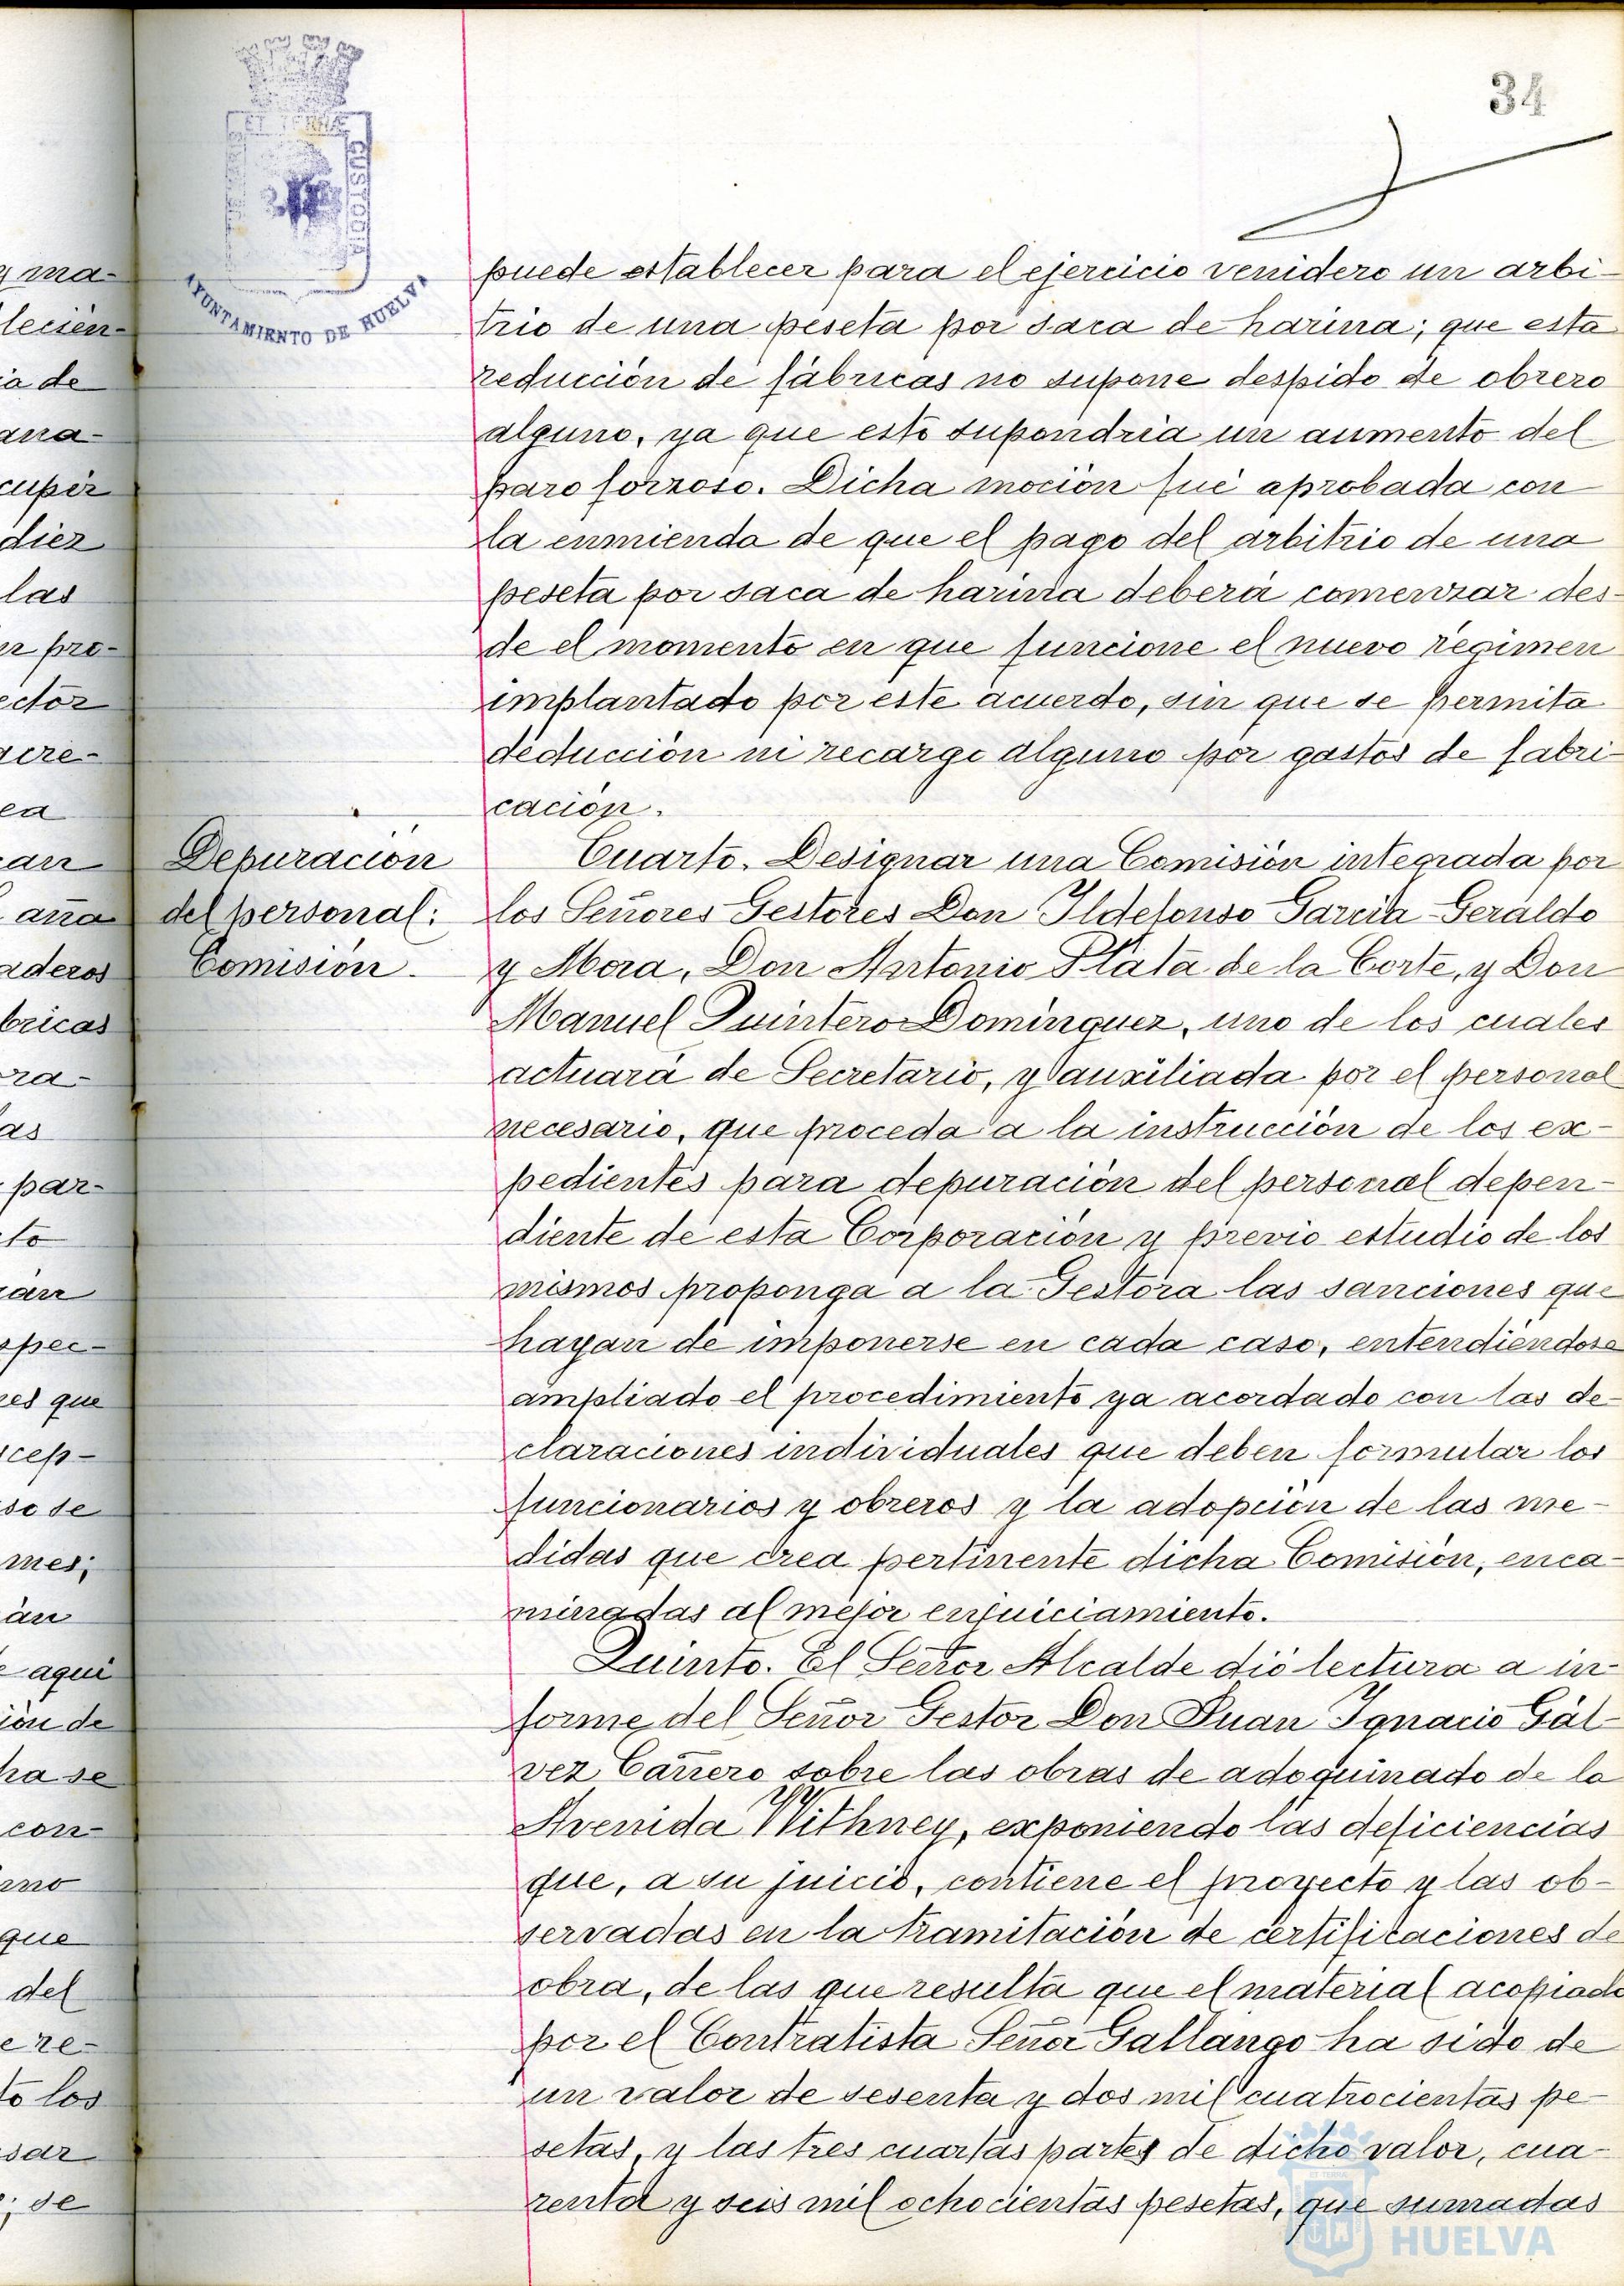 34
ET TERRAE
CUSTODIA
AYUNTAMIENTO DE HUELVA
puede establecer para el ejercicio venidero un arbi-
trio de una peseta por saca de harina; que esta
reducción de fábricas no supone despido de obrero
alguno, ya que esto supondría un aumento del
paro forzoso. Dicha moción fué aprobada con
la enmienda de que el pago del arbitrio de una
peseta por saca de harina deberá comenzar des-
de el momento en que funcione el nuevo régimen
implantado por este acuerdo, sin que se permita
deducción ni recargo alguno por gastos de fabri-
cación.
Depuración
del personal:
Comisión.
Cuarto. Designar una Comisión integrada por
los Señores Gestores Don Ildefonso García Geraldo
y Mora, Don Antonio Plata de la Corte, y Don
Manuel Quintero Domínguez, uno de los cuales
actuará de Secretario, y auxiliada por el personal
necesario, que proceda a la instrucción de los ex-
pedientes para depuración del personal depen-
diente de esta Corporación y previo estudio de los
mismos proponga a la Gestora las sanciones que
hayan de imponerse en cada caso, entendiéndose
ampliado el procedimiento ya acordado con las de-
claraciones individuales que deben formular los
funcionarios y obreros y la adopción de las me-
didas que crea pertinente dicha Comisión, enca-
minadas al mejor enjuiciamiento.
Quinto. El Señor Alcalde dió lectura a in-
forme del Señor Gestor Don Juan Ignacio Gál-
vez Cañero sobre las obras de adoquinado de la
Avenida Withney, exponiendo las deficiencias
que, a su juicio, contiene el proyecto y las ob-
servadas en la tramitación de certificaciones de
obra, de las que resulta que el material acopiado
por el Contratista Señor Gallango ha sido de
un valor de sesenta y dos mil cuatrocientas pe-
setas, y las tres cuartas partes de dicho valor, cua-
renta y seis mil ochocientas pesetas, que sumadas
HUELVA